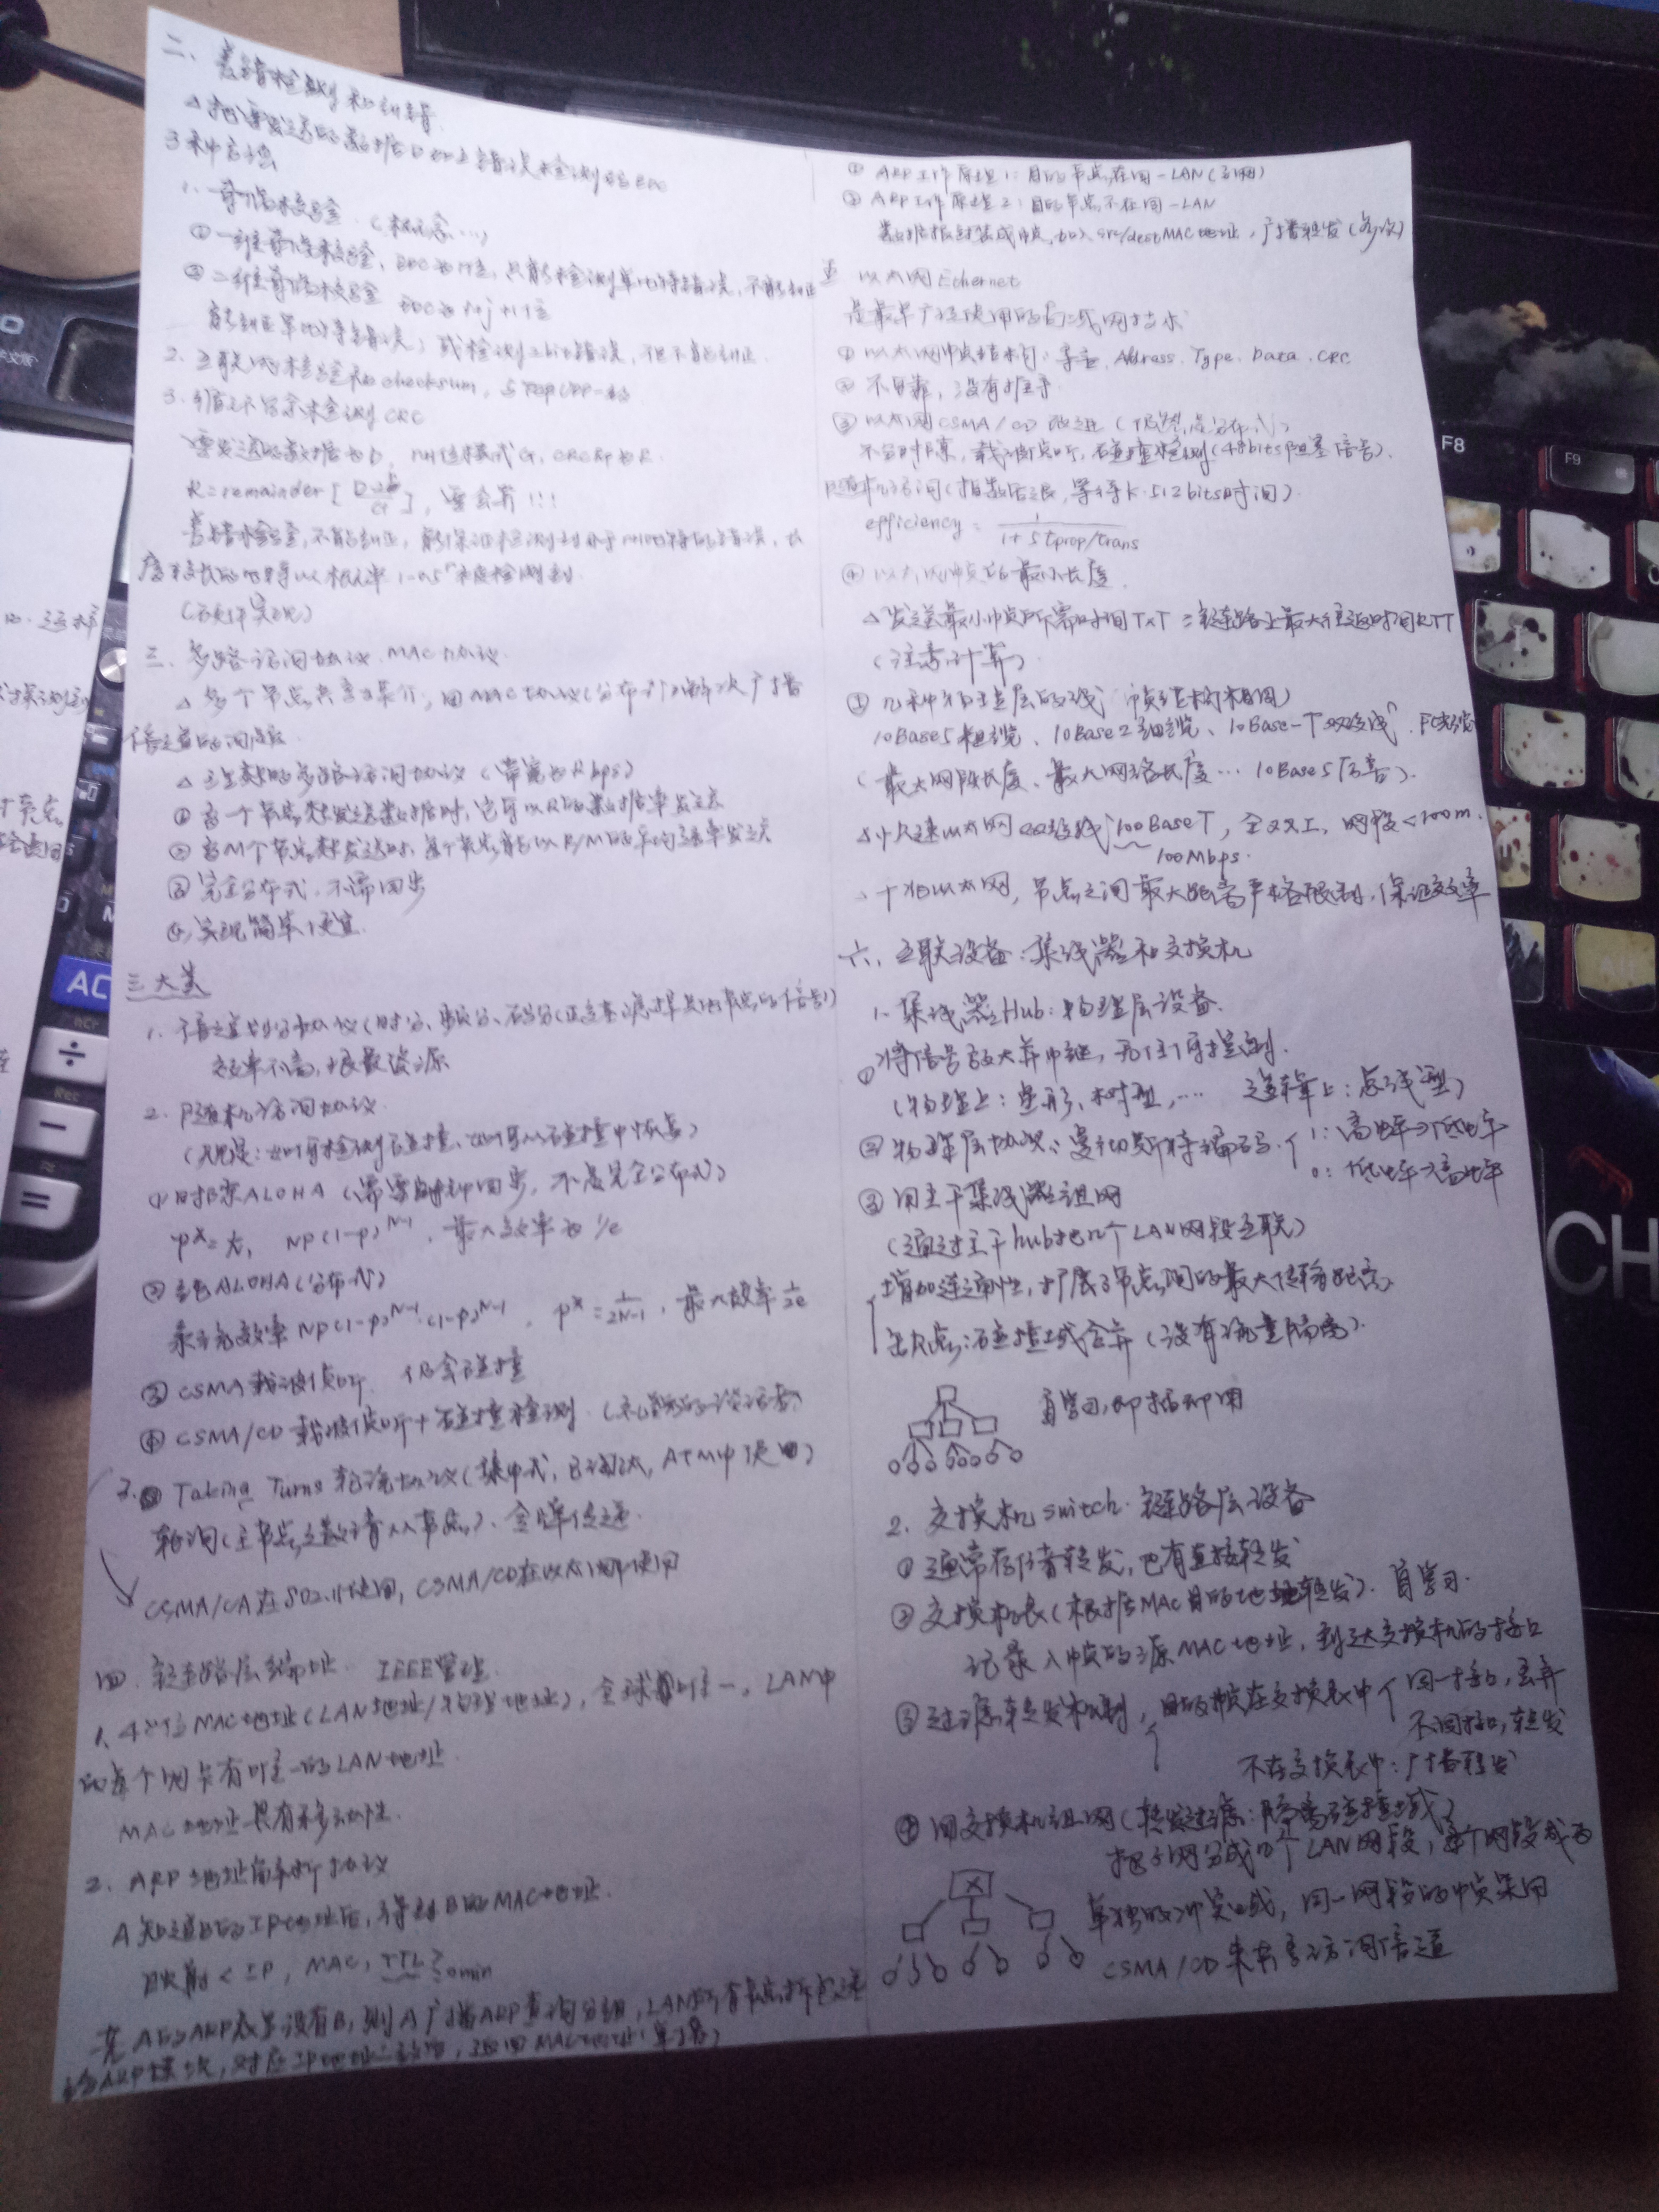 二、差错检测和纠错
△ 把要发送的数据D加上错误检测码EDC
3种方法
1. 奇偶校验.(概念…)
① 一维奇偶校验, EDC为1位, 只能检测单比特错误, 不能纠正
② 二维奇偶校验 EDC为i+j+1位
能纠正单比特错误; 或检测2bit错误, 但不能纠正.
2. 互联网检验和checksum, 与TCP UDP一样
3. 循环冗余检测CRC
要发送的数据为D, r+1位模式G, CRC码为R.
R=remainder [ ], 要会算!!!
差错检查, 不能纠正, 能保证检测到小于r+1比特的错误, 长
度较长的也将以概率1-0.5^r被检测到.
(硬件实现)
三、多路访问协议. MAC协议.
△ 多个节点共享媒介, 由MAC协议(分布式)解决广播
信道的问题.
△ 理想的多路访问协议 (带宽为R bps)
① 当一个节点想发送数据时, 它可以R的数据率发送
② 当M个节点想发送时, 每个节点能以R/M的平均速率发送
③ 完全分布式, 不需同步
④ 实现简单, 便宜.
三大类
1. 信道划分协议(时分、频分、码分
效率不高, 浪费资源
2. 随机访问协议.
(规定: 如何检测碰撞, 如何从碰撞中恢复)
① 时隙ALOHA (需要时钟同步, 不是完全分布式)
NP(1-p)^N-1, 最大效率为1/e
② 纯ALOHA(分布式)
效率 NP(1-p)^N-1·(1-p)^N-1, p*=1/2N-1, 最大效率1/2e
③ CSMA载波侦听 仍会碰撞
④ CSMA/CD 载波侦听+碰撞检测.(礼貌的谈话者)
3. Taking Turns 轮流协议(集中式, ATM中使用)
轮询(主节点邀请从节点)、令牌传递.
CSMA/CA在802.11使用, CSMA/CD在以太网中使用
四、链路层编址. IEEE管理.
1. 48位MAC地址(LAN地址/物理地址), 全球唯一. LAN中
的每个网卡有唯一的LAN地址.
MAC地址具有移动性.
2. ARP地址解析协议
A知道B的IP地址后, 得到B的MAC地址.
映射 < IP, MAC, TTL> 20min
若A的ARP表里没有B, 则A广播ARP查询分组, LAN所有节点
给ARP模块, 返回MAC地址(单播)
① ARP工作原理1: 目的节点在同一LAN(子网)
② ARP工作原理2: 目的节点不在同一LAN
数据报封装成帧, 加入src/dest MAC地址, 广播转发
五 以太网Ethernet
是最早广泛使用的局域网技术
① 以太网帧结构: 导言. Address. Type. Data. CRC
② 不可靠, 没有握手.
③ 以太网CSMA/CD改进
不分时隙, 载波侦听, 碰撞检测(48bits阻塞信号).
随机访问(指数后退, 等待K·512bits时间).
efficiency = 1/1+5tprop/trans
④ 以太网帧的最小长度.
△ 发送最小帧所需时间TxT ≥ 链路上最大往返时间RTT
(注意计算)
⑤ 几种物理层的线 (帧结构相同)
10Base5粗缆、10Base2细缆、10Base-T双绞线、F光缆
(最大网段长度、最大网络长度… 10Base5后者).
△ 快速以太网 双绞线100BaseT, 全双工, 网段<100m.
100Mbps.
△ 千兆以太网, 节点之间最大距离严格限制, 保证效率
六、互联设备: 集线器和交换机
1. 集线器Hub: 物理层设备.
① 将信号放大并中继, 无任何控制.
(物理上: 星形、树型, … 逻辑上: 总线型)
② 物理层协议: 曼彻斯特编码. 1: 高电平→低电平
0: 低电平→高电平
③ 用主干集线器组网
(通过主干hub把n个LAN网段互联)
增加连通性, 扩展了节点间的最大传输距离
缺点: 碰撞域合并 (没有流量隔离).
自学习, 即插即用
2. 交换机switch. 链路层设备
① 通常存储转发, 也有直接转发
② 交换机表(根据MAC目的地址转发). 自学习.
记录入帧的源MAC地址, 到达交换机的接口
③ 过滤、转发机制, 目的帧在交换表中 同一接口, 丢弃
不同接口, 转发
不在交换表中: 广播转发
④ 用交换机组网(转发过滤: 隔离碰撞域)
把子网分成n个LAN网段, 每个网段成为
单独的冲突域, 同一网段的帧采用
CSMA/CD来共享访问信道
AC
÷
−
=
F8
F9
Rec
Alt
CH